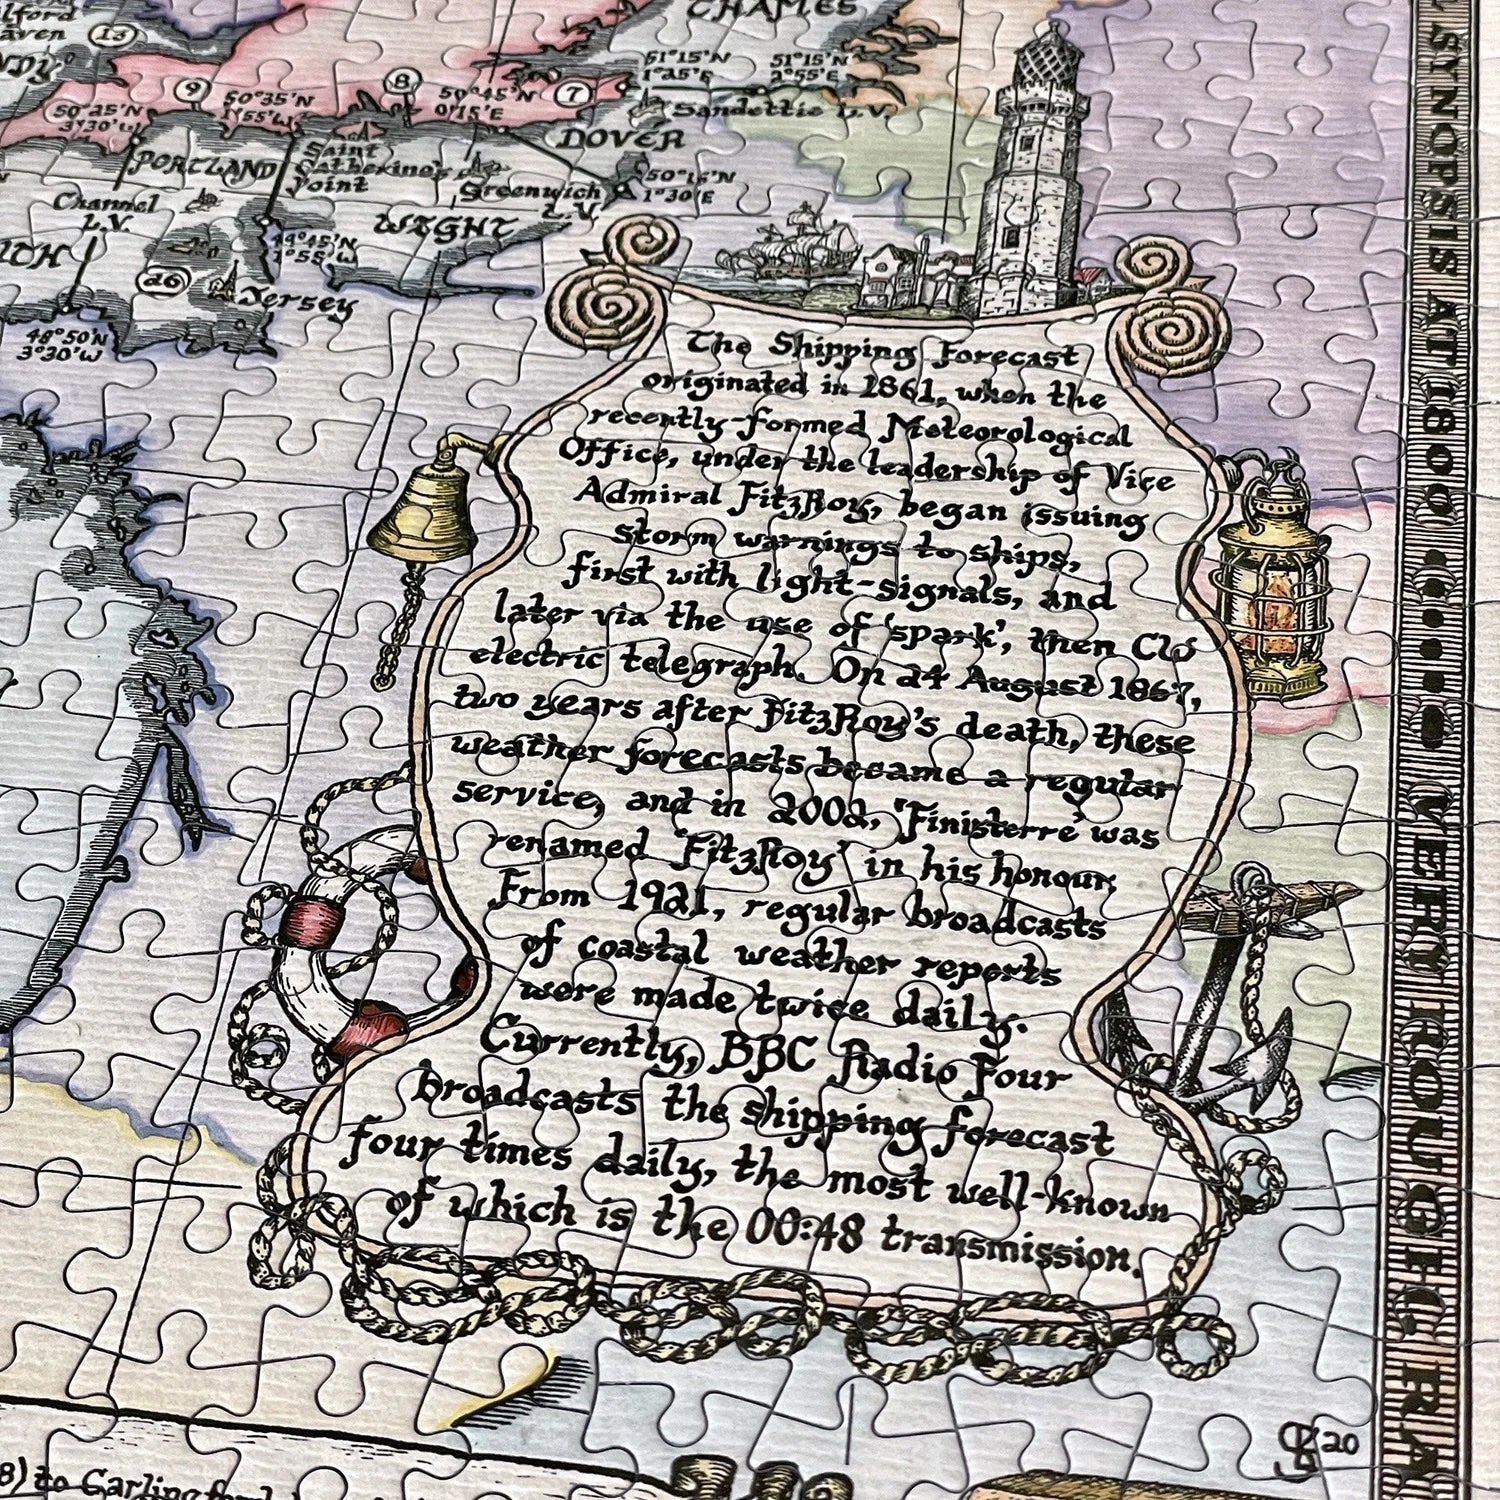 CHAMES
51°15'N
1°25'E
51°15'N
2°55'E
13
9
50°35'N
1°55'W
8
50°45'N
0°15'E
7
Sandettie L.V.
50°25'N
3°30'W
DOVER
PORTLAND
Saint
Catherine's
Point
Greenwich
L.V.
50°15'N
1°30'E
Channel
L.V.
WIGHT
49°45'N
1°55'W
26
Jersey
48°50'N
3°30'W
The Shipping Forecast
originated in 1861, when the
recently-formed Meteorological
Office, under the leadership of Vice
Admiral FitzRoy, began issuing
storm warnings to ships,
first with light-signals, and
later via the use of 'spark', then
electric telegraph. On 24 August 1867,
two years after FitzRoy's death, these
weather forecasts became a regular
service, and in 2002, 'Finisterre' was
renamed 'FitzRoy' in his honour.
From 1921, regular broadcasts
of coastal weather reports
were made twice daily.
Currently, BBC Radio Four
broadcasts the shipping forecast
four times daily, the most well-known
of which is the 00:48 transmission.
SYNOPSIS AT 1800 VERY ROUGH. RA
20
8) to Carlingford